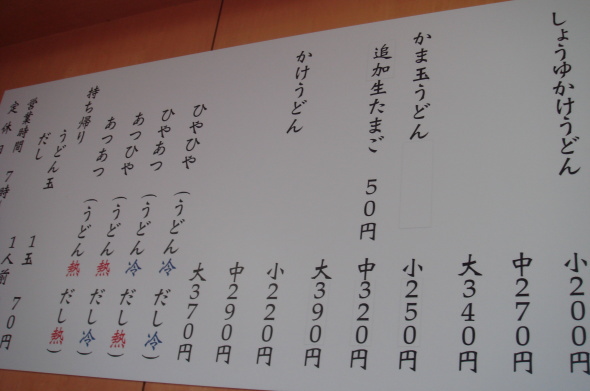 しょうゆかけうどん 小200円
中270円
大340円
かま玉うどん 小250円
追加生たまご 50円 中320円
大390円
かけうどん 小220円
中290円
大370円
ひやひや (うどん冷 だし冷)
ひやあつ (うどん冷 だし熱)
あつひや (うどん熱 だし冷)
あつあつ (うどん熱 だし熱)
持ち帰り
うどん玉 1玉 70円
だし 1人前
営業時間 7時
定休